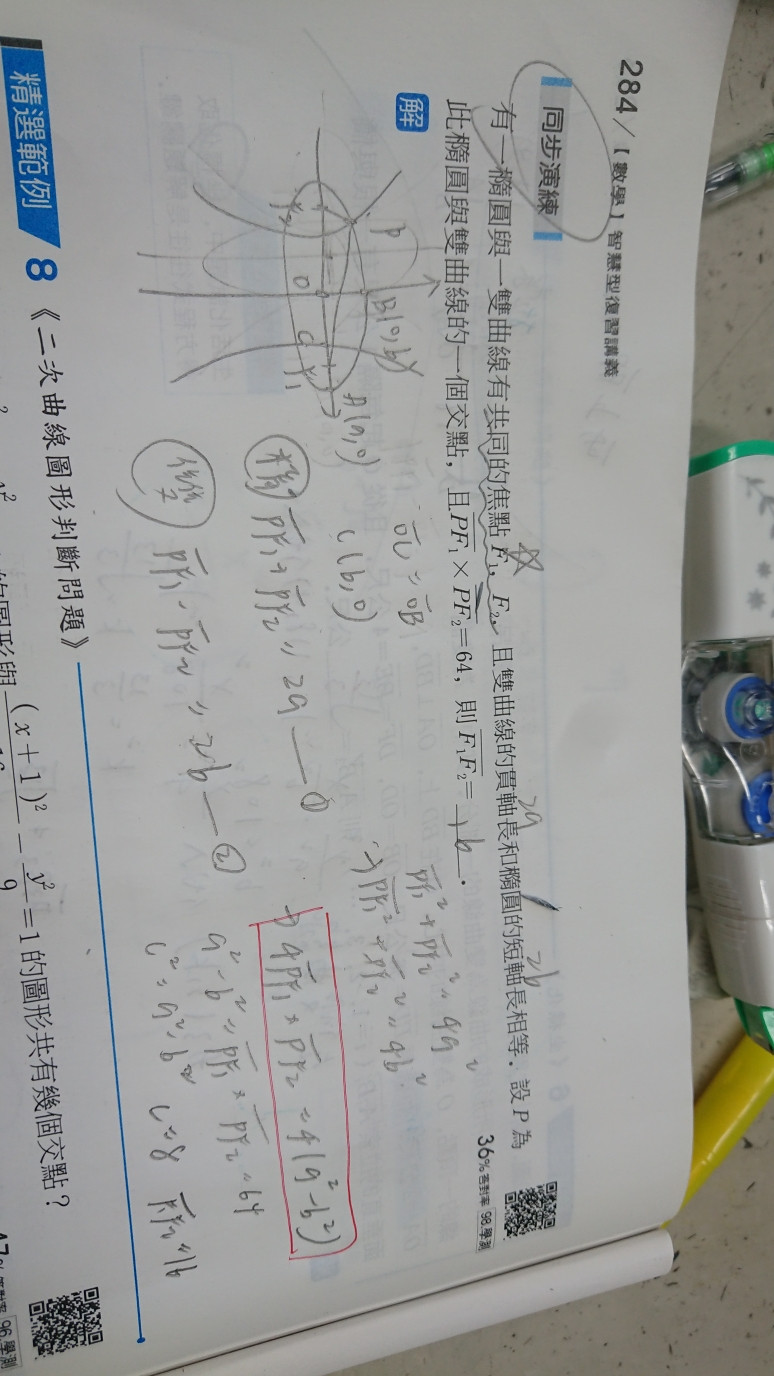 284/【數學】智慧型復習講義
同步演練
有一橢圓與一雙曲線有共同的焦點 F₁、F₂，且雙曲線的貫軸長和橢圓的短軸長相等．設 P 為
2a
2b
此橢圓與雙曲線的一個交點，且 PF₁ × PF₂ = 64，則 F₁F₂ = 16 ．
36% 答對率 98.學測
解
P
B(0,b)
F₂
O
C
F₁
A(a,0)
OC = OB
C(b,0)
PF₁ + PF₂ = 2a — ①
PF₁ - PF₂ = 2b — ②
PF₁² + PF₂² = 4a²
→ PF₁² + PF₂² = 4b²
→ 4PF₁ × PF₂ = 4(a² - b²)
a² - b² = PF₁ × PF₂ = 64
c² = a² - b² c = 8 F₁F₂ = 16
精選範例 8 《二次曲線圖形判斷問題》
的圖形與 (x+1)² − y²/9 = 1 的圖形共有幾個交點？
47% 答對率 96.學測